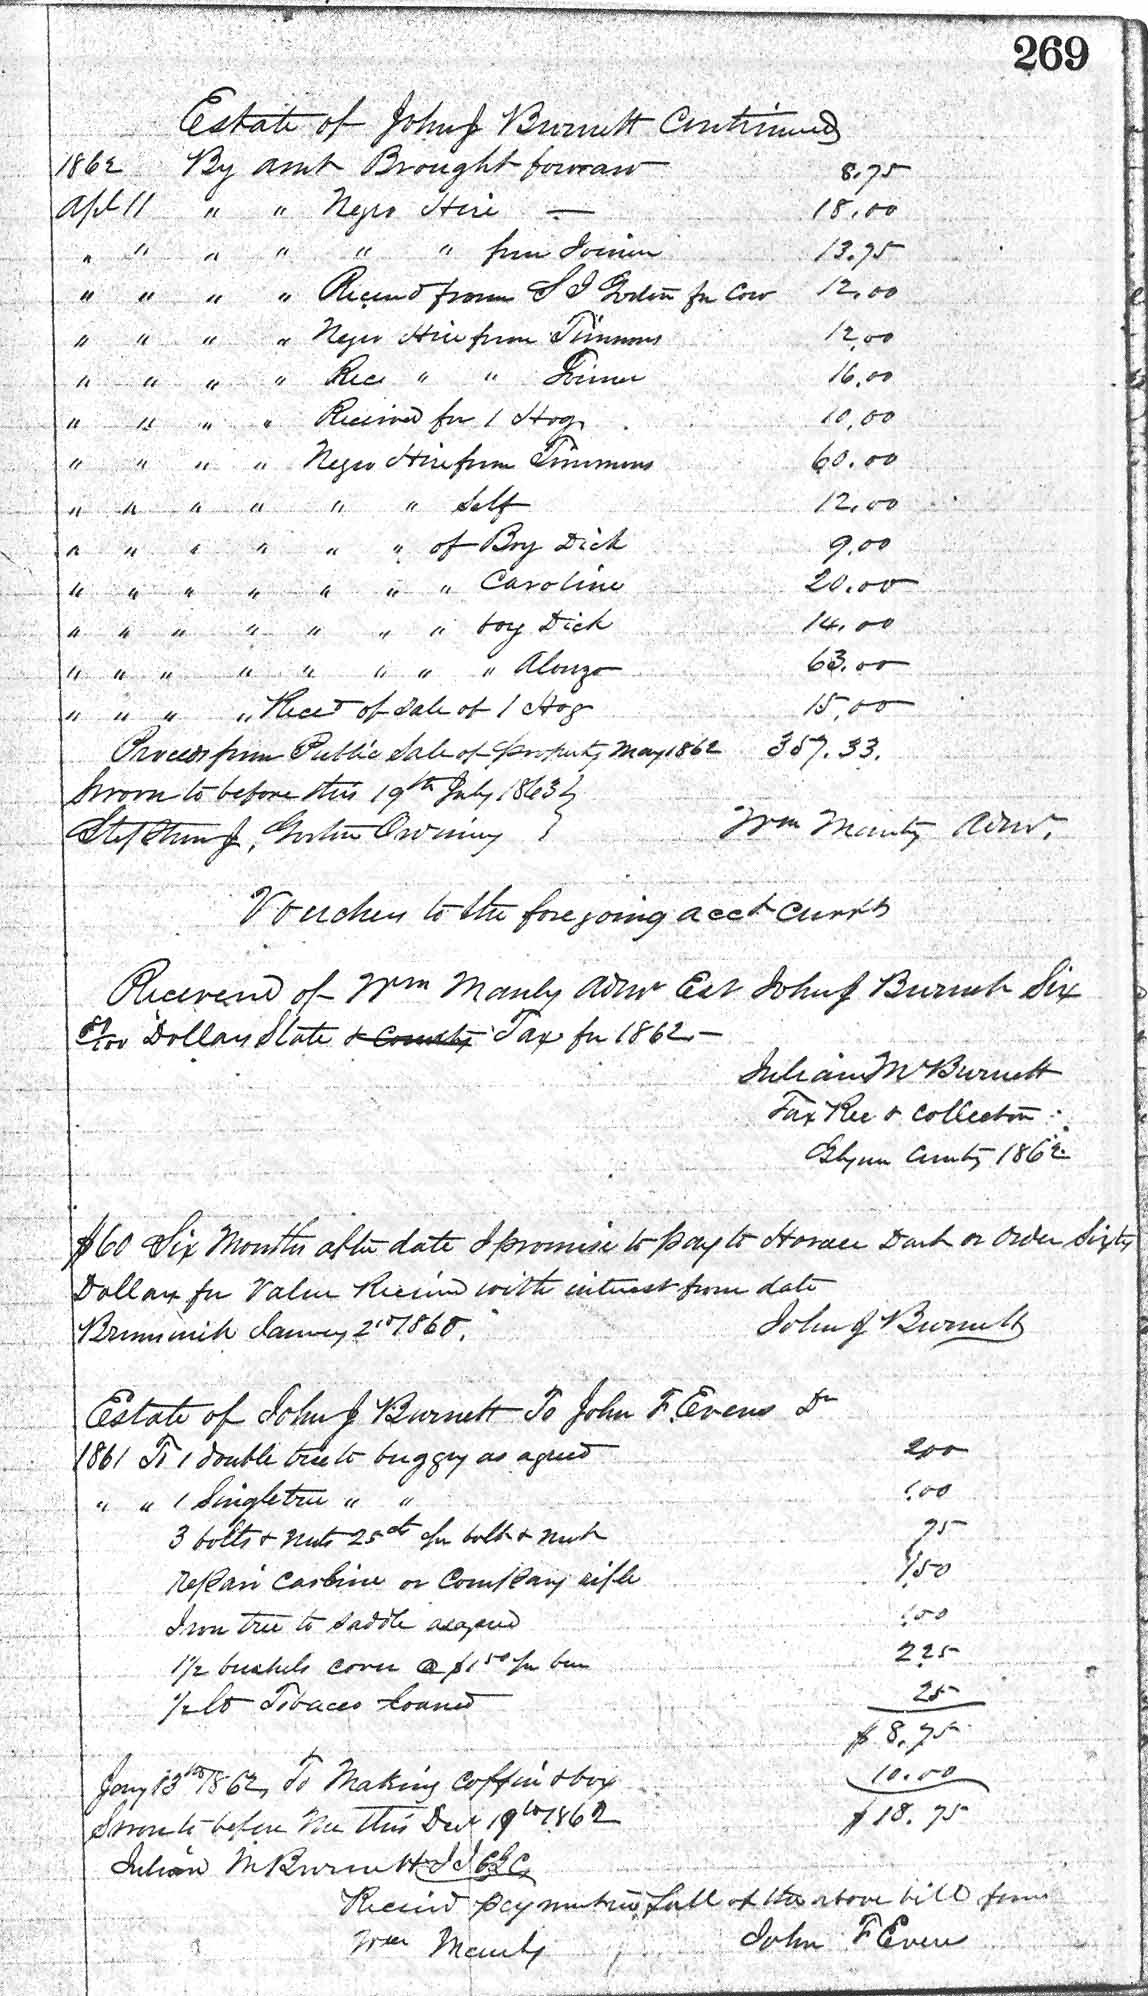 269
Estate of John J Burnett Continued
1862 By amt Brought forward 8.75
Apl 11 " " Negro Hire — 18.00
" " " " " " from Joiner 13.75
" " " " Received from S J Gorton for Cow 12.00
" " " " Negro Hire from Timmons 12.00
" " " " Rec " " Joiner 16.00
" " " " Received for 1 Hog 10.00
" " " " Negro Hire from Timmons 60.00
" " " " " " Self 12.00
" " " " " " of Boy Dick 9.00
" " " " " " " Caroline 20.00
" " " " " " " boy Dick 14.00
" " " " " " " " Alonzo 63.00
" " " " Reced of Sale of 1 Hog 15.00
Proceeds from Public Sale of property May 1862 357.33.
Sworn to before this 19th July 1863 }
Stephen J. Gorton Ordinary } Wm Manly Admr.
Vouchers to the foregoing acct currt
Received of Wm Manly Admr Est John J Burnett Six
/100 Dollars State & County Tax for 1862 –
Julian M Burnett
Tax Rec & Collector
Glynn County 1862
$60 Six Months after date I promise to pay to Horace Dart or Order Sixty
Dollars for Value Received with interest from date
Brunswick January 2nd 1860. John J Burnett
Estate of John J Burnett To John F. Evens Dr
1861 To 1 double tree to buggy as agreed 200
" " 1 Singletree " " 1.00
3 bolts & nuts 25 cts for bolt & nut 75
repair carbine or Company rifle 1.50
Iron tree to saddle as agreed 1.00
1 1/2 bushels corn @ $1 50 per bus 2 25
1/2 lb Tobacco loaned 25
$ 8.75
Jany 13th 1862, To Making coffin & box 10.00
Sworn to before me this Dec 19th 1862 $ 18.75
Julian M Burnett J I C G C
Receivd payment in full of the above bill from
Wm Manly John F Evens